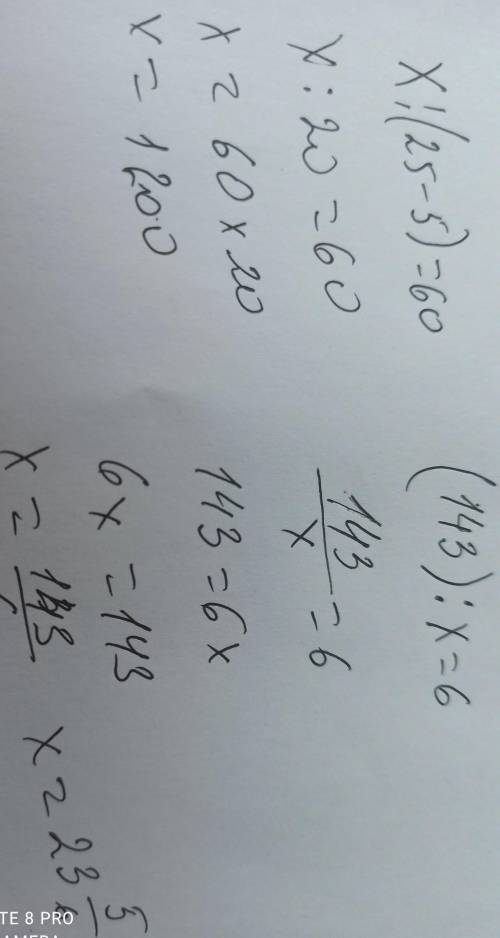 X:(25-5)=60
X:20=60
x=60x20
x=1200
(143):x=6
143/x=6
143=6x
6x=143
x=143/
x=23 5/
TE 8 PRO
CAMERA